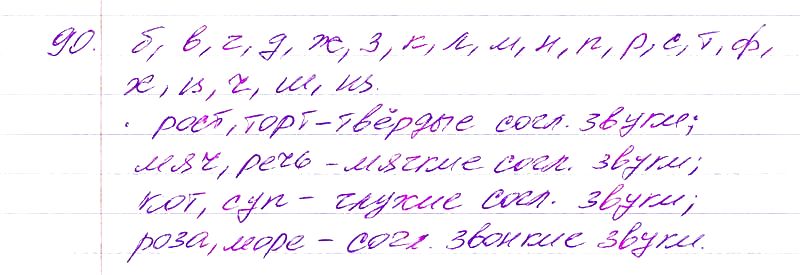 90. б, в, г, д, ж, з, к, л, м, н, п, р, с, т, ф,
х, ц, ч, ш, щ.
рост, торт – твёрдые согл. звуки;
мяч, речь – мягкие согл. звуки;
кот, суп – глухие согл. звуки;
роза, море – согл. звонкие звуки.